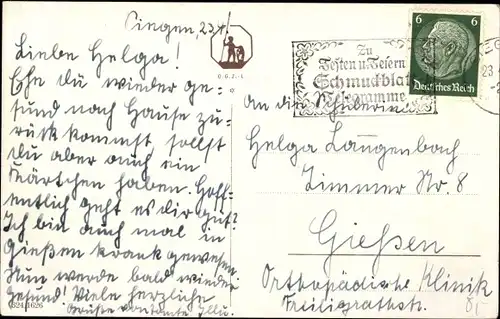 Singen, 23.4.
Liebe Helga!
Ehe du wieder ge-
sund nach Hause zu-
rück kommst, sollst
du aber auch ein
Kärtchen haben. Hoff-
entlich geht es dir gut?
Ich bin auch mal in
Gießen krank gewesen.
Nun werde bald wieder
gesund! Viele herzliche
Grüße von Tante
6241626
O.G.Z.-L.
Zu
Festen u. Feiern
Schmuckblatt
Telegramme
6 6
Deutsches Reich
23.
An die Schülerin
Helga Langenbach
Zimmer Nr. 8
Gießen
Orthopädische Klinik
Freiligrathstr.